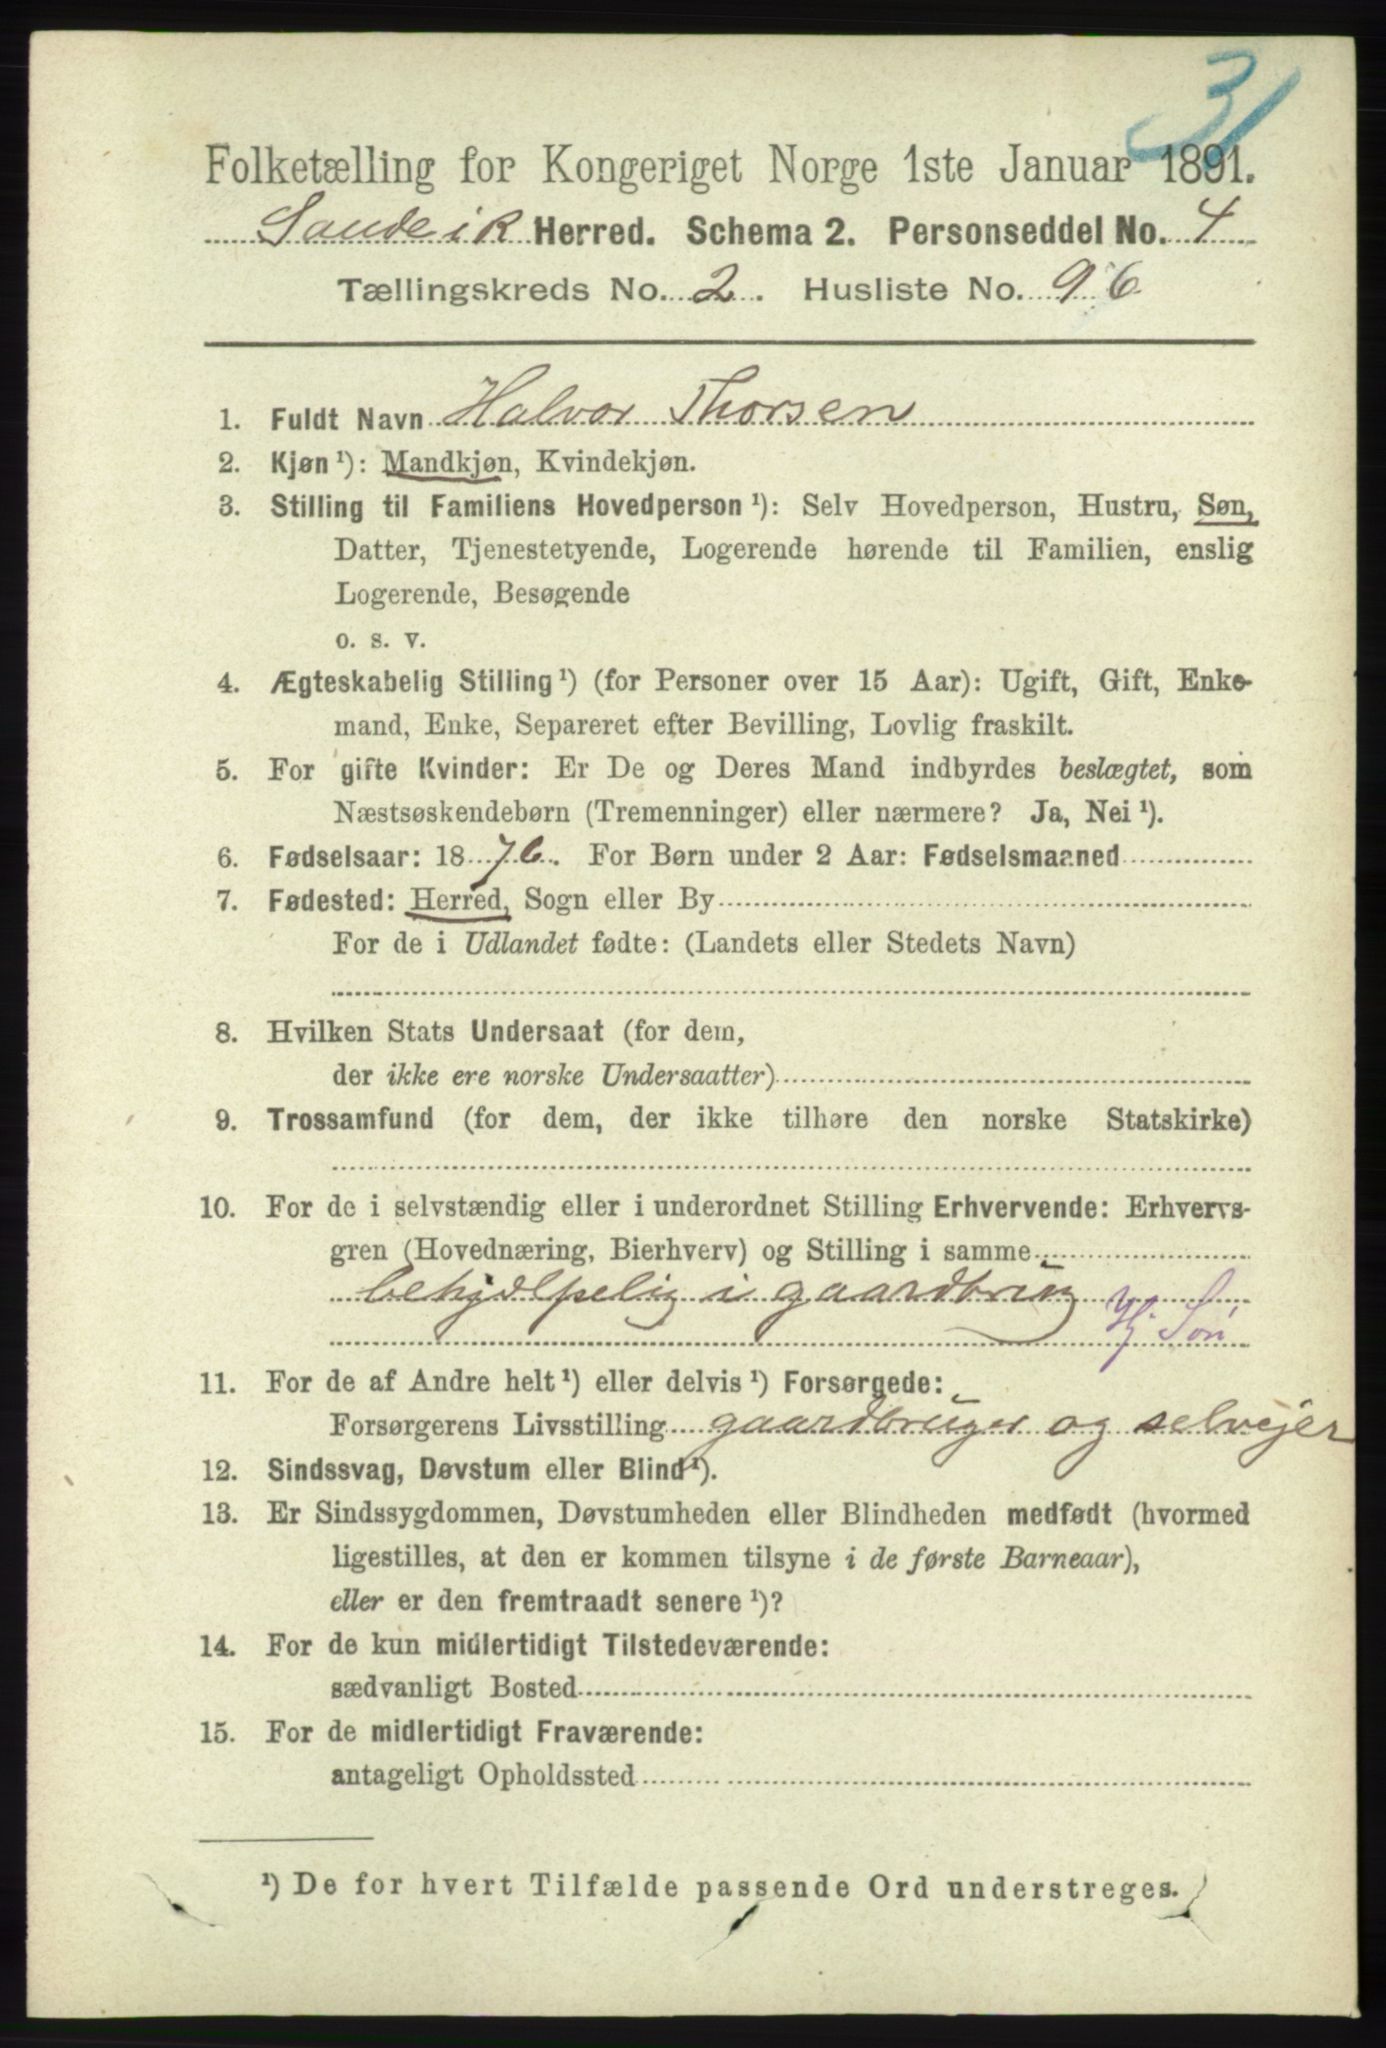 31
Folketælling for Kongeriget Norge 1ste Januar 1891.
Sandeik Herred. Schema 2. Personseddel No. 4
Tællingskreds No. 2. Husliste No. 96
1. Fuldt Navn Halvor Thorsen
2. Kjøn ¹): Mandkjøn, Kvindekjøn.
3. Stilling til Familiens Hovedperson ¹): Selv Hovedperson, Hustru, Søn,
Datter, Tjenestetyende, Logerende hørende til Familien, enslig
Logerende, Besøgende
o. s. v.
4. Ægteskabelig Stilling ¹) (for Personer over 15 Aar): Ugift, Gift, Enke-
mand, Enke, Separeret efter Bevilling, Lovlig fraskilt.
5. For gifte Kvinder: Er De og Deres Mand indbyrdes beslægtet, som
Næstsøskendebørn (Tremenninger) eller nærmere? Ja, Nei ¹).
6. Fødselsaar: 1876. For Børn under 2 Aar: Fødselsmaaned
7. Fødested: Herred, Sogn eller By
For de i Udlandet fødte: (Landets eller Stedets Navn)
8. Hvilken Stats Undersaat (for dem,
der ikke ere norske Undersaatter)
9. Trossamfund (for dem, der ikke tilhøre den norske Statskirke)
10. For de i selvstændig eller i underordnet Stilling Erhvervende: Erhvervs-
gren (Hovednæring, Bierhverv) og Stilling i samme
behjælpelig i gaardbrug
Hj. Søn
11. For de af Andre helt ¹) eller delvis ¹) Forsørgede:
Forsørgerens Livsstilling gaardbruger og selvejer
12. Sindssvag, Døvstum eller Blind ¹).
13. Er Sindssygdommen, Døvstumheden eller Blindheden medfødt (hvormed
ligestilles, at den er kommen tilsyne i de første Barneaar),
eller er den fremtraadt senere ¹)?
14. For de kun midlertidigt Tilstedeværende:
sædvanligt Bosted
15. For de midlertidigt Fraværende:
antageligt Opholdssted
¹) De for hvert Tilfælde passende Ord understreges.